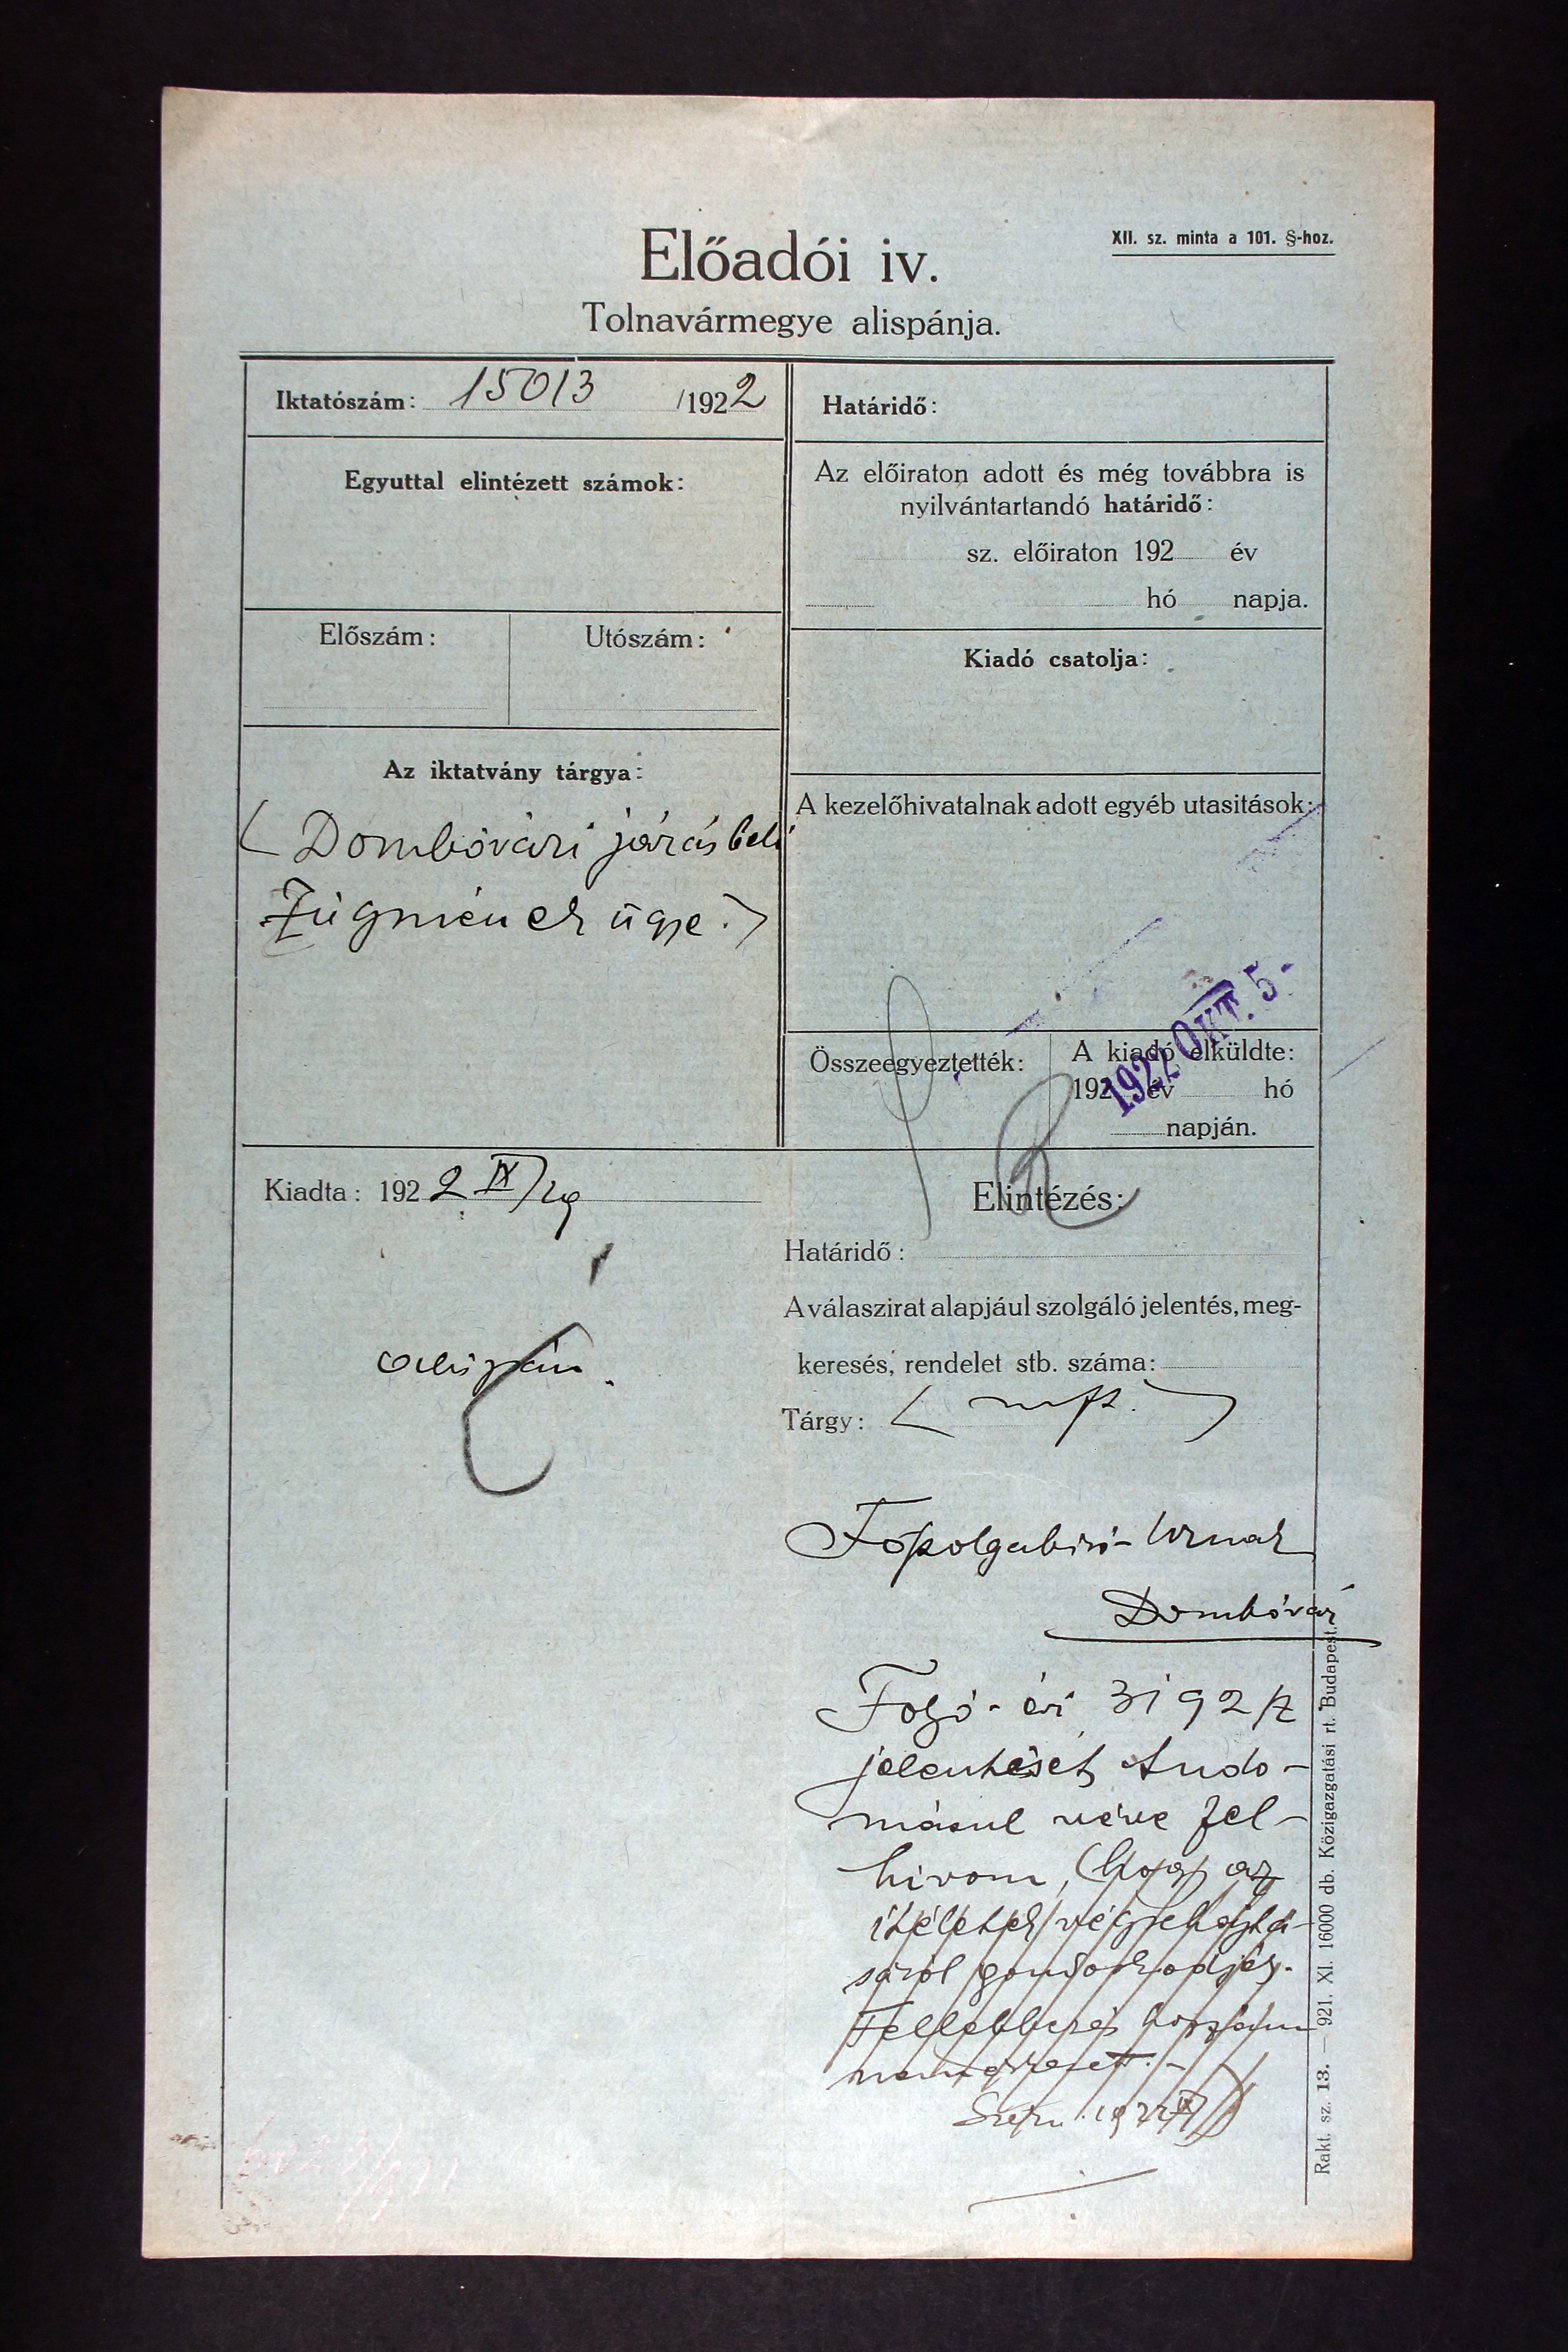 XII. sz. minta a 101. §-hoz.
Előadói iv.
Tolnavármegye alispánja.
Iktatószám: 15013 /1922
Határidő:
Egyuttal elintézett számok:
Az előiraton adott és még továbbra is
nyilvántartandó határidő:
sz. előiraton 192 év
hó napja.
Előszám:
Utószám:
Kiadó csatolja:
Az iktatvány tárgya:
(Dombóvári járásbeli
Zúgmének ügye.)
A kezelőhivatalnak adott egyéb utasitások:
Összeegyeztették:
A kiadó elküldte:
192 év hó
napján.
1922 OKT. 5-
Kiadta: 1922 IX/29
alispán.
Elintézés:
Határidő:
A válaszirat alapjául szolgáló jelentés, meg-
keresés, rendelet stb. száma:
Tárgy:
Főszolgabiró Urnak
Dombóvár
Folyó évi 3192
jelentését tudo-
másul véve fel-
hivom, hogy az
itéletek végrehajtá-
sáról gondoskodjék.
Fellebbezés hozzám
nem érkezett.-
Rakt. sz. 13. — 921. XI. 16000 db. Közigazgatási rt. Budapest.